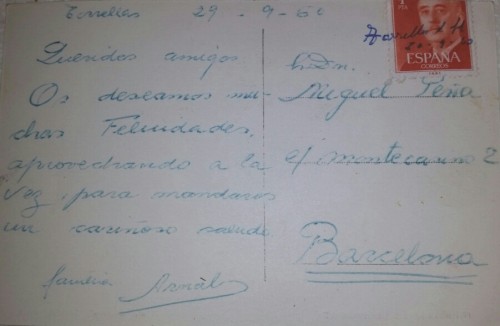 Torrelles 29-9-60
Queridos amigos
Os deseamos mu-
chas Felicidades,
aprovechando a la
vez para mandaros
un cariñoso saludo.
familia Arnál
Dn.
Miguel Peña
c/ montecarmo 2
Barcelona
1
PTA
ESPAÑA
CORREOS
Torrellas